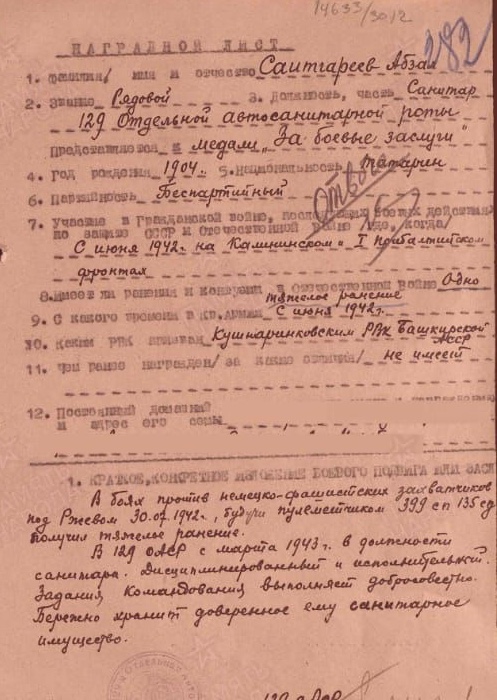 14633/3012
282
НАГРАДНОЙ ЛИСТ
1. Фамилия, имя и отчество Саитгареев Абзал
2. Звание Рядовой 3. Должность, часть Санитар
129 Отдельной автосанитарной роты
Представляется к медали „За боевые заслуги"
4. Год рождения 1904г. 5. Национальность татарин
6. Партийность Беспартийный
7. Участие в Гражданской войне, последующих боевых действиях
по защите СССР и Отечественной войне /где, когда/
С июня 1942г. на Калининском и I Прибалтийском
фронтах
8. Имеет ли ранения и контузии в Отечественной войне Одно
тяжелое ранение
9. С какого времени в кр. армии с июня 1942г.
10. Каким РВК призван Кушнаринковским РВК Башкирской
АССР
11. Чем ранее награжден /за какие отличия/ не имеет
12. Постоянный домашний
и адрес его семьи
1. КРАТКОЕ, КОНКРЕТНОЕ ИЗЛОЖЕНИЕ БОЕВОГО ПОДВИГА ИЛИ ЗАСЛ
В боях против немецко-фашистских захватчиков
под Ржевом 30.07.1942г., будучи пулеметчиком 399 сп 135 сд
получил тяжелое ранение.
В 129 ОАСР с марта 1943г. в должности
санитара. Дисциплинированный и исполнительный.
Задания Командования выполняет добросовестно.
Бережно хранит доверенное ему санитарное
имущество.